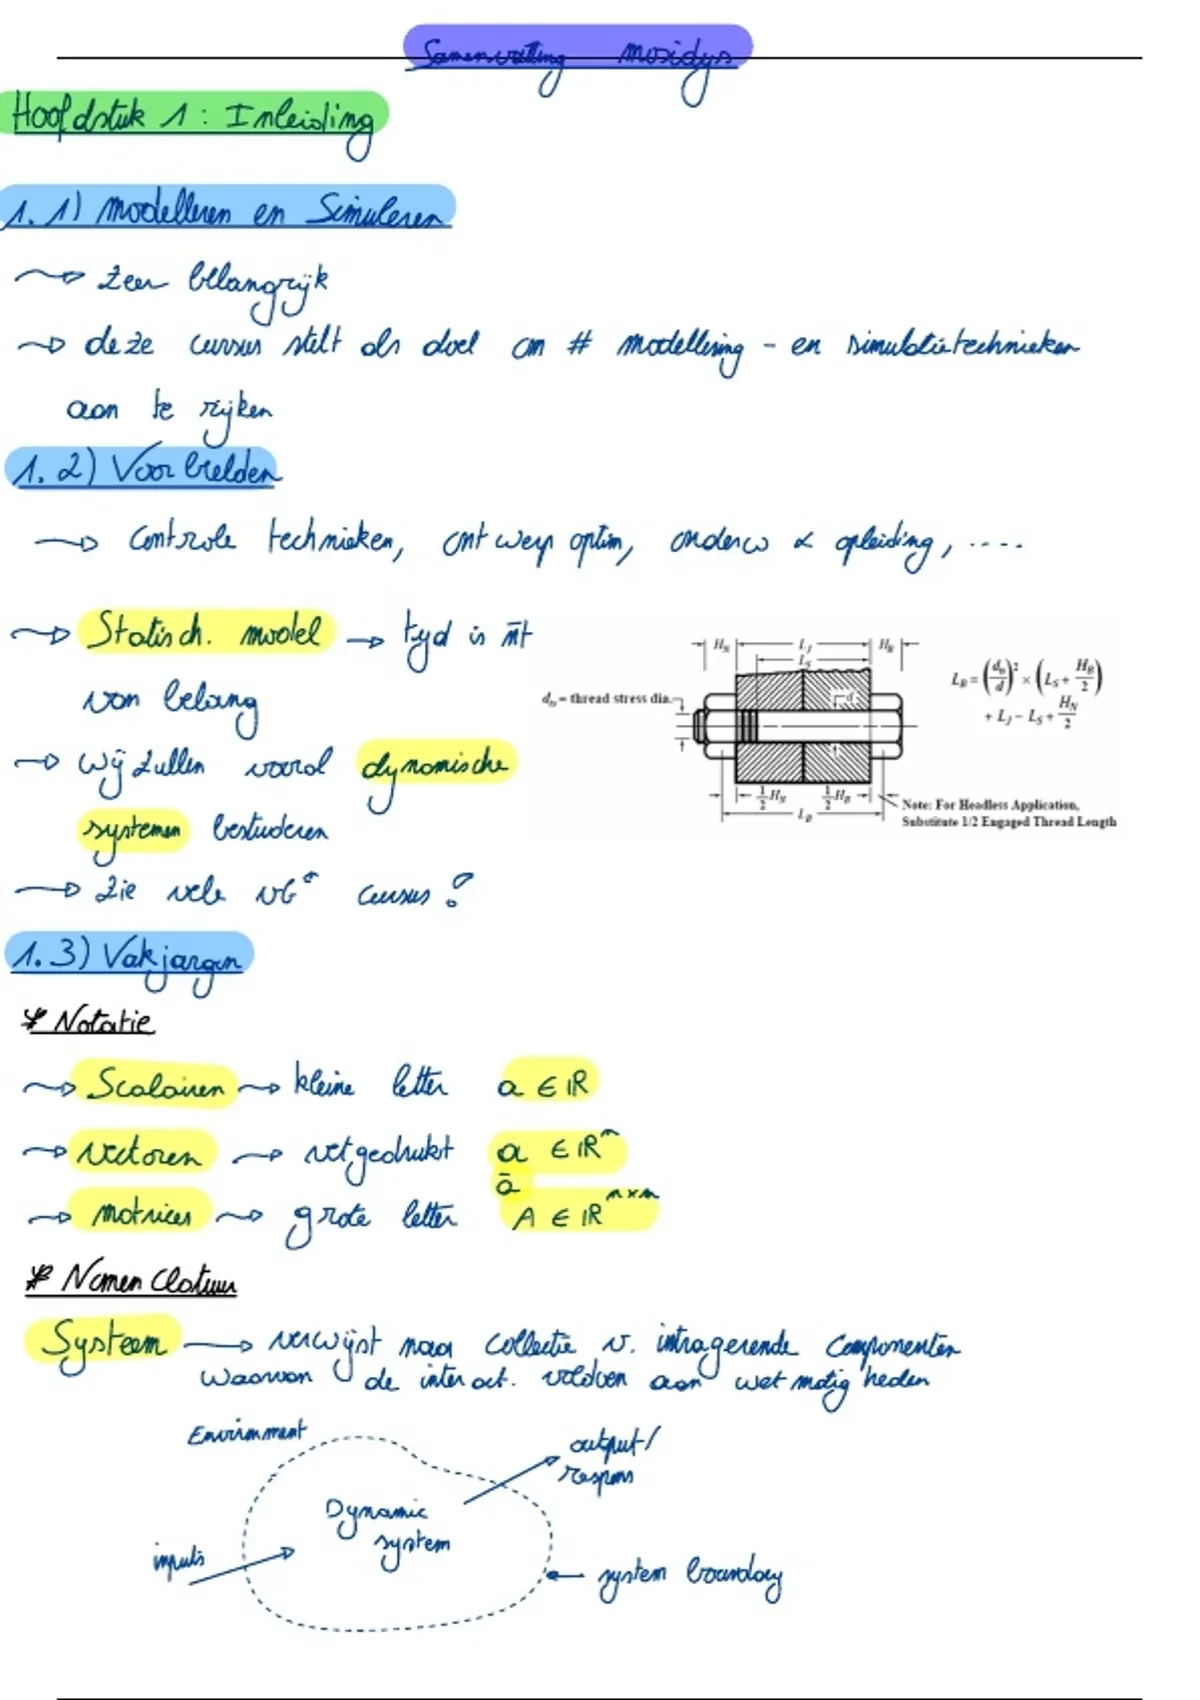 Samenvatting mosidys
Hoofdstuk 1 : Inleiding
1.1) modelleren en Simuleren
→ zeer belangrijk
→ deze cursus stelt als doel om # modellering - en simulatietechnieken
aan te rijken
1.2) Voorbeelden
→ Controle technieken, ontwerp optim, onderw & opleiding, ....
→ Statisch. model → tijd is nt
van belang
→ wij zullen vooral dynamische
systemen bestuderen
→ zie vele vb cursus !
H_N L_J H_B
L_S
d_ts = thread stress dia.
d
L_B = (d_ts/d)² × (L_S + H_B/2)
+ L_J − L_S + H_N/2
½H_N ½H_B
L_B
Note: For Headless Application,
Substitute 1/2 Engaged Thread Length
1.3) Vakjargon
* Notatie
→ Scalairen → kleine letter a ∈ ℝ
→ vectoren → vetgedrukt a ∈ ℝⁿ
ā
→ matrices → grote letter A ∈ ℝⁿˣᵐ
* Nomenclatuur
Systeem → verwijst naar collectie v. intragerende componenten
waarvan de interact. voldoen aan wetmatigheden
Environment
output/
respons
Dynamic
system
inputs
system boundary